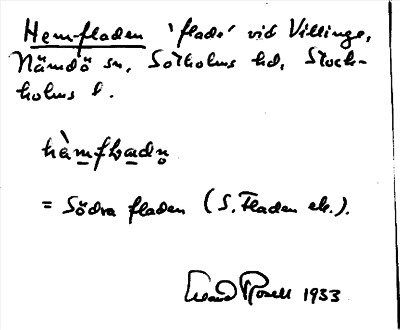 Hemfladen 'flade' vid Villinge,
Nämdö sn, Sotholms hd, Stock-
holms l.
hàmfladn̥
= Södra fladen (S. Fladen ek.).
Rosell 1933